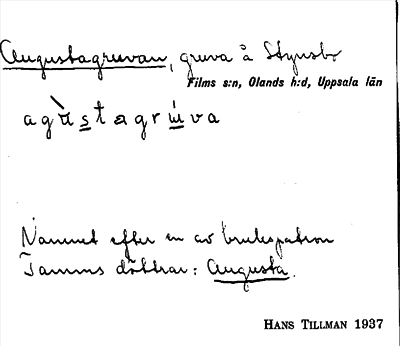 Augustagruvan, gruva å Stynsbo
Films s:n, Olands h:d, Uppsala län
agùstagrúva
Namnet efter en av brukspatron
Tamms döttrar: Augusta.
HANS TILLMAN 1937